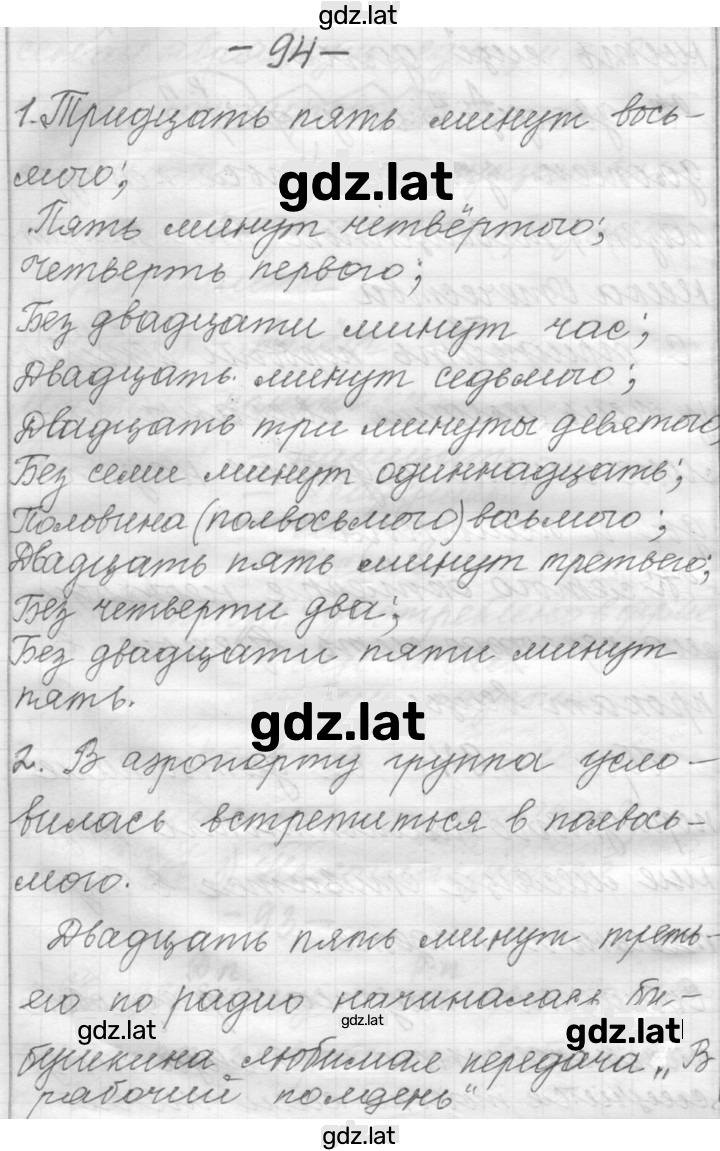 gdz.lat
- 94 -
1. Тридцать пять минут вось-
мого;
gdz.lat
Пять минут четвёртого;
Четверть первого;
Без двадцати минут час;
Двадцать минут седьмого;
Двадцать три минуты девятого,
Без семи минут одиннадцать;
Половина (полвосьмого) восьмого;
Двадцать пять минут третьего;
Без четверти два;
Без двадцати пяти минут
пять.
gdz.lat
2. В аэропорту группа усло-
вилась встретиться в полвось-
мого.
Двадцать пять минут треть-
его по радио начиналась ба-
gdz.lat
gdz.lat
gdz.lat
бушкина любимая передача „В
рабочий полдень"
gdz.lat